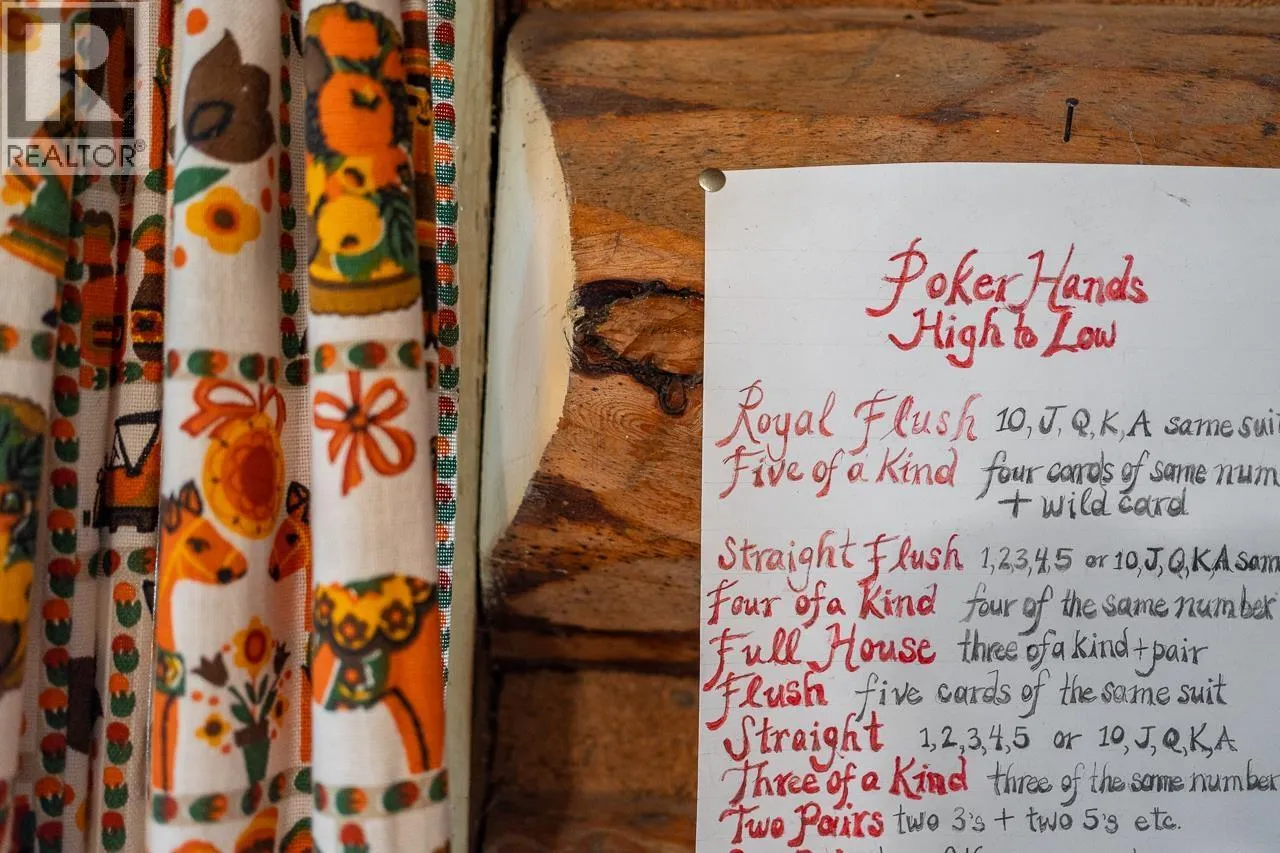 R
REALTOR®
Poker Hands
High to Low
Royal Flush 10, J, Q, K, A same suit
Five of a Kind four cards of same num
+ wild card
Straight Flush 1,2,3,4,5 or 10,J,Q,K,A sam
Four of a Kind four of the same number
Full House three of a kind + pair
Flush five cards of the same suit
Straight 1,2,3,4,5 or 10, J, Q, K, A
Three of a Kind three of the same number
Two Pairs two 3's + two 5's etc.